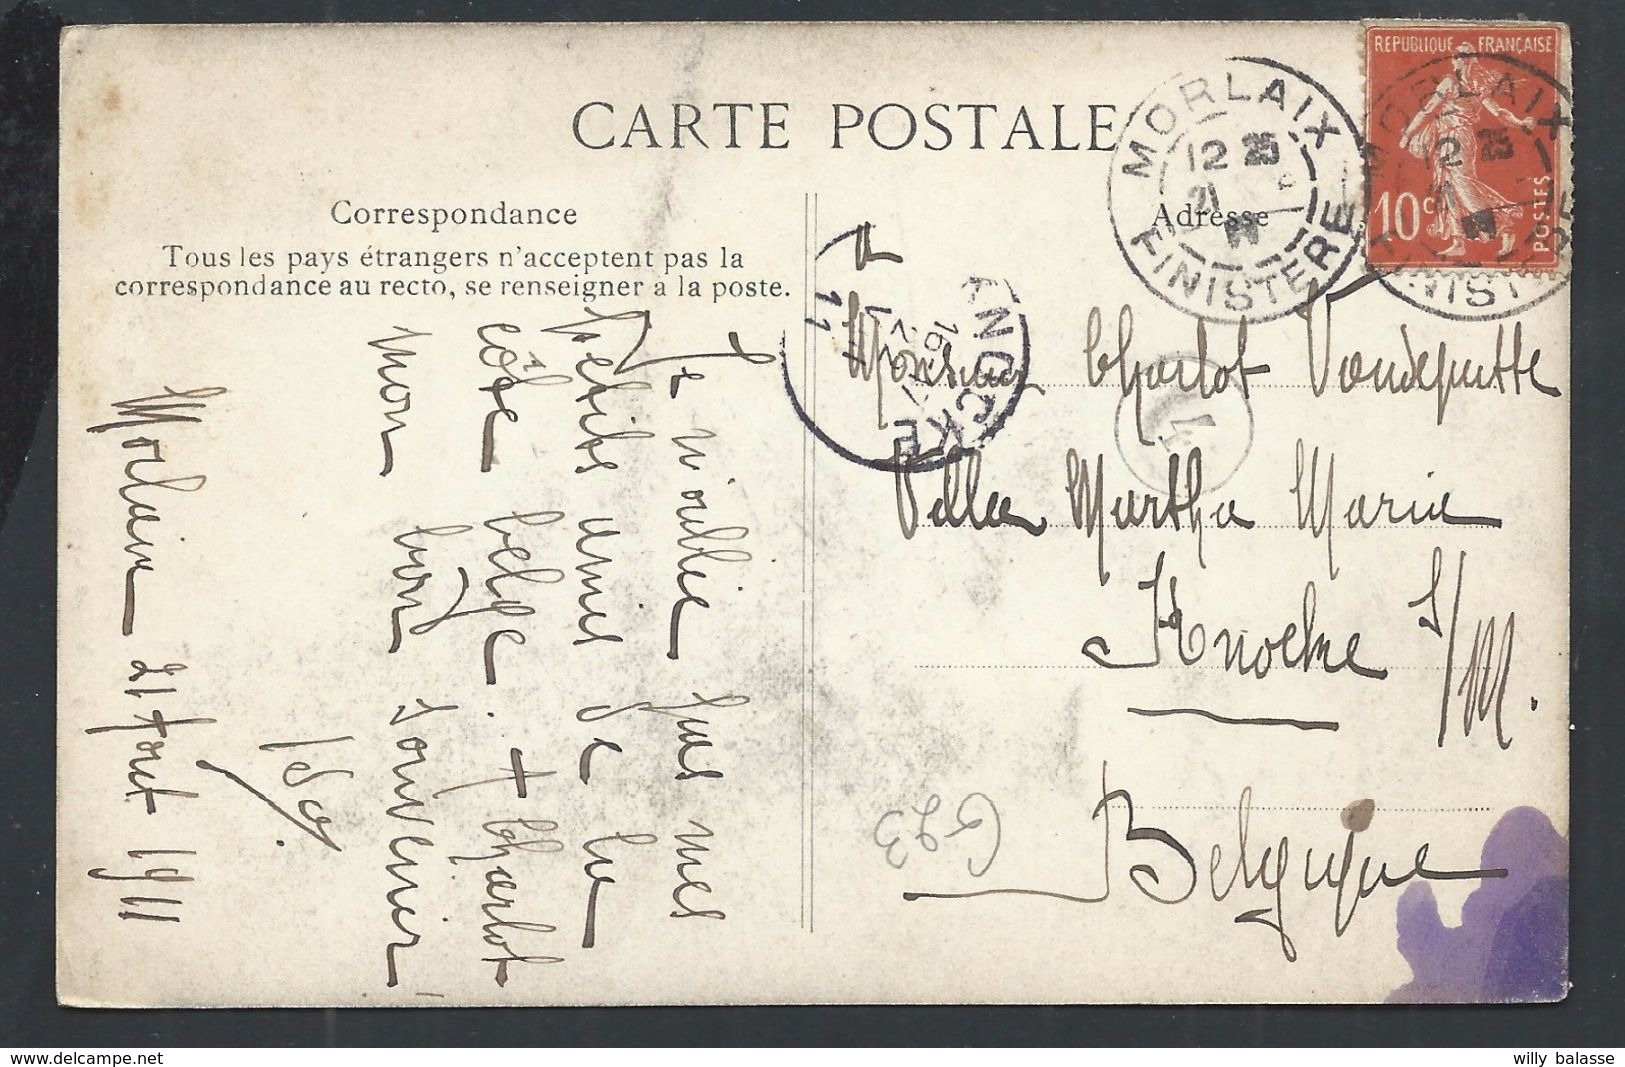 CARTE POSTALE
Correspondance
Tous les pays étrangers n'acceptent pas la
correspondance au recto, se renseigner à la poste.
Adresse
REPUBLIQUE FRANÇAISE
10c
POSTES
MORLAIX
12 25
21
FINISTERE
MORLAIX
12 25
KNOCKE
11
Je n'oublie pas mes
petits amis de la
côte belge. + Charlot
mon bon souvenir
Morlaix 21 Aout 1911
Monsieur Charlot Vandeputte
Villa Martha Maria
Knocke s/M.
Belgique
G23
willy balasse